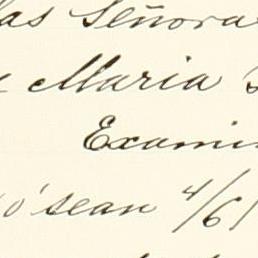 las Señora
Maria
Exami
ó sean 4/6